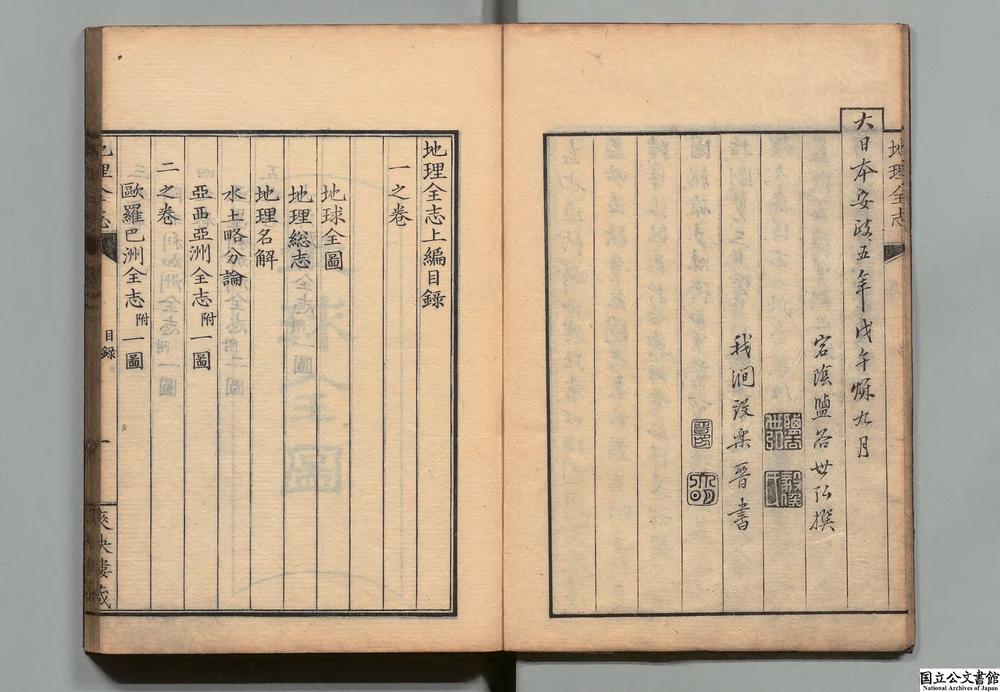 地理全志
大日本安政五年戊午秌九月
宕陰鹽谷世弘撰
我洞設樂晉書
地理全志上編目錄
一之卷
地球全圖
地理總志
地理名解
水土略分論
亞西亞洲全志附一圖
二之卷
歐羅巴洲全志附一圖
地理全志
目錄
一
爽快樓藏
国立公文書館
National Archives of Japan